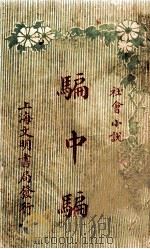 社會小說
騙中騙
上海文明書局發行